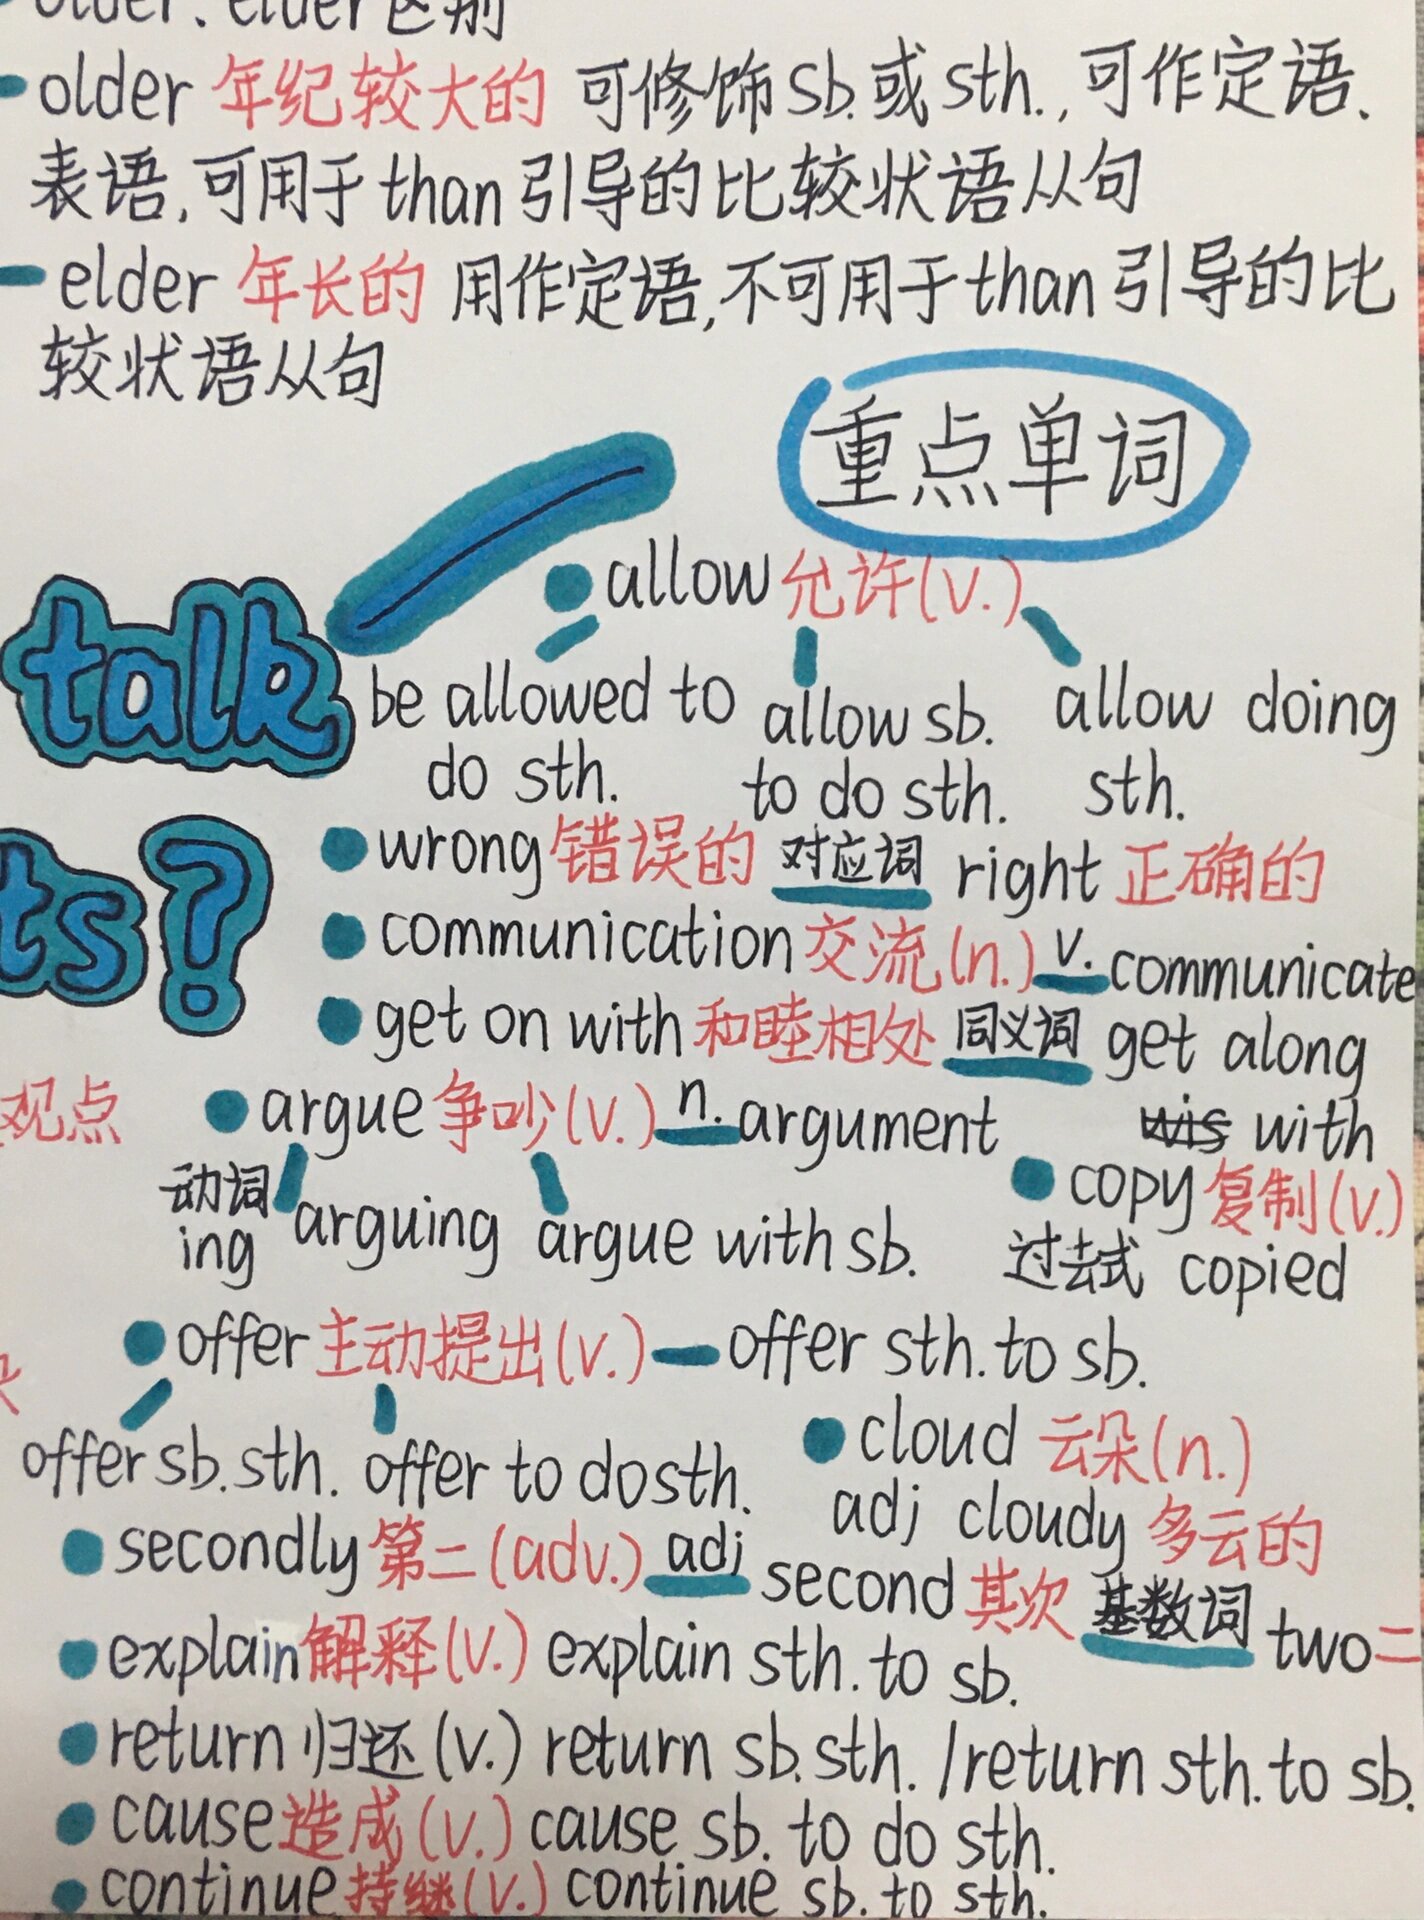 older、elder区别
older 年纪较大的 可修饰sb.或sth.,可作定语、
表语,可用于than引导的比较状语从句
elder 年长的 用作定语,不可用于than引导的比
较状语从句
重点单词
allow 允许(v.)
be allowed to do sth.
allow sb. to do sth.
allow doing sth.
talk
ts?
wrong 错误的 对应词 right 正确的
communication 交流(n.) v. communicate
get on with 和睦相处 同义词 get along
wis with
观点
argue 争吵(v.) n. argument
动词ing arguing argue with sb.
copy 复制(v.)
过去式 copied
offer 主动提出(v.) — offer sth. to sb.
offer sb. sth. offer to do sth.
cloud 云朵(n.)
adj cloudy 多云的
secondly 第二(adv.) adj second 其次 基数词 two 二
explain 解释(v.) explain sth. to sb.
return 归还(v.) return sb. sth. /return sth. to sb.
cause 造成(v.) cause sb. to do sth.
continue 持继(v.) continue sb. to sth.